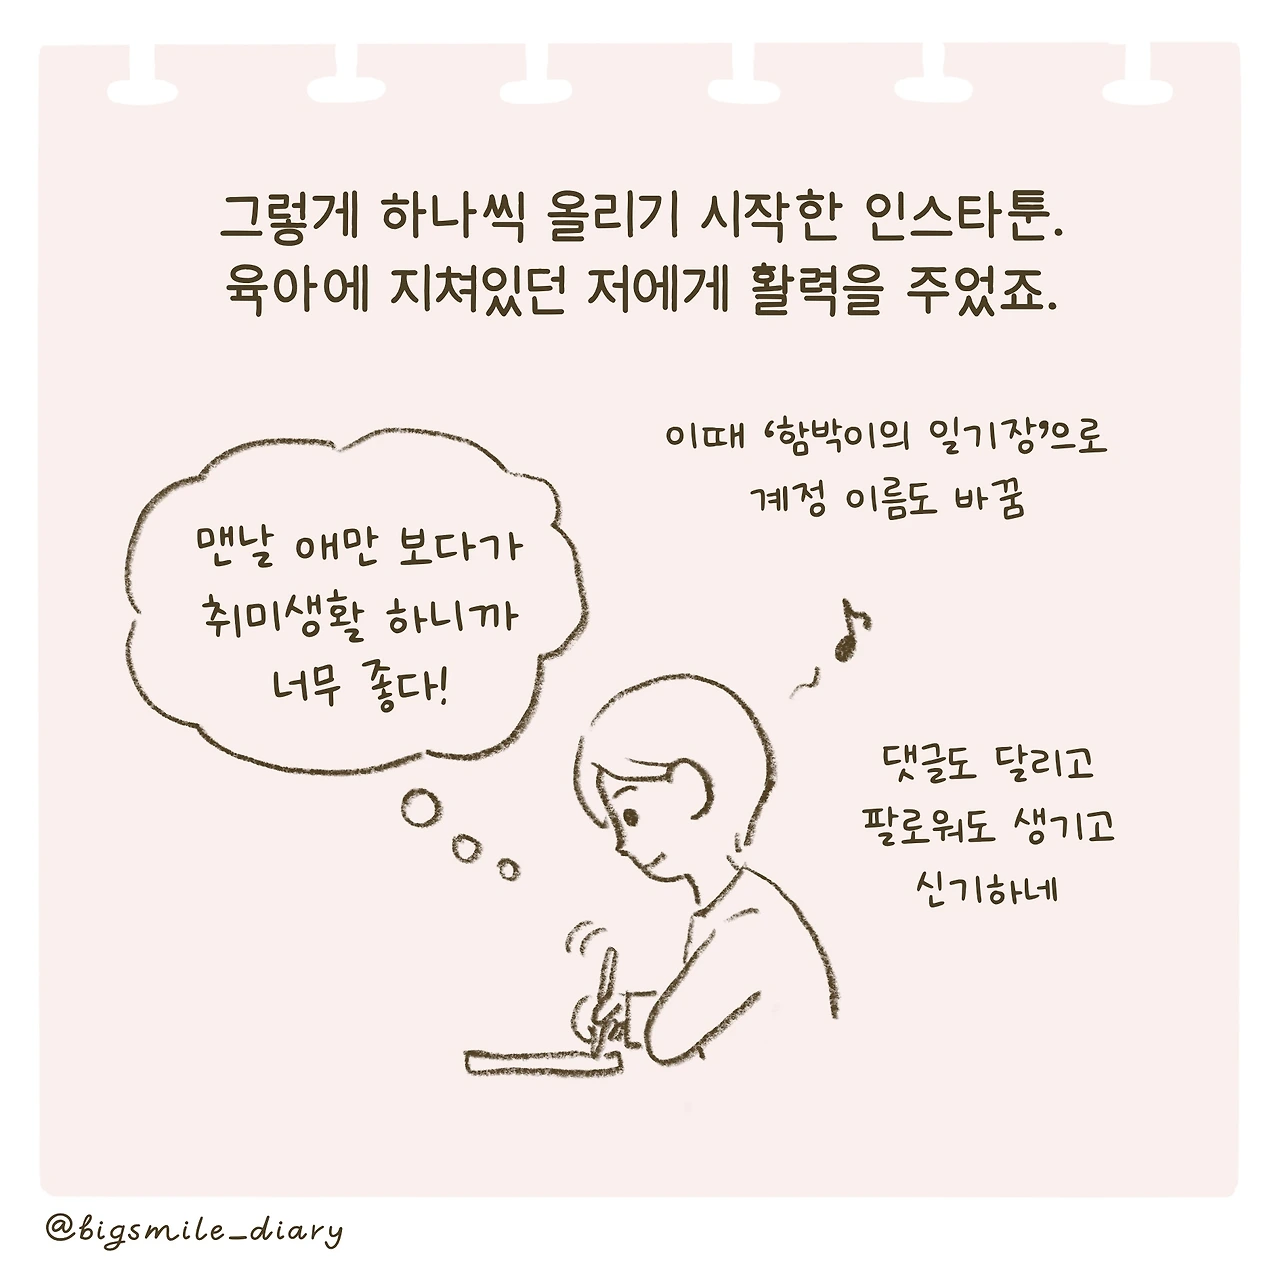 그렇게 하나씩 올리기 시작한 인스타툰.
육아에 지쳐있던 저에게 활력을 주었죠.
이때 ‘함박이의 일기장’으로
계정 이름도 바꿈
맨날 애만 보다가
취미생활 하니까
너무 좋다!
댓글도 달리고
팔로워도 생기고
신기하네
@bigsmile_diary